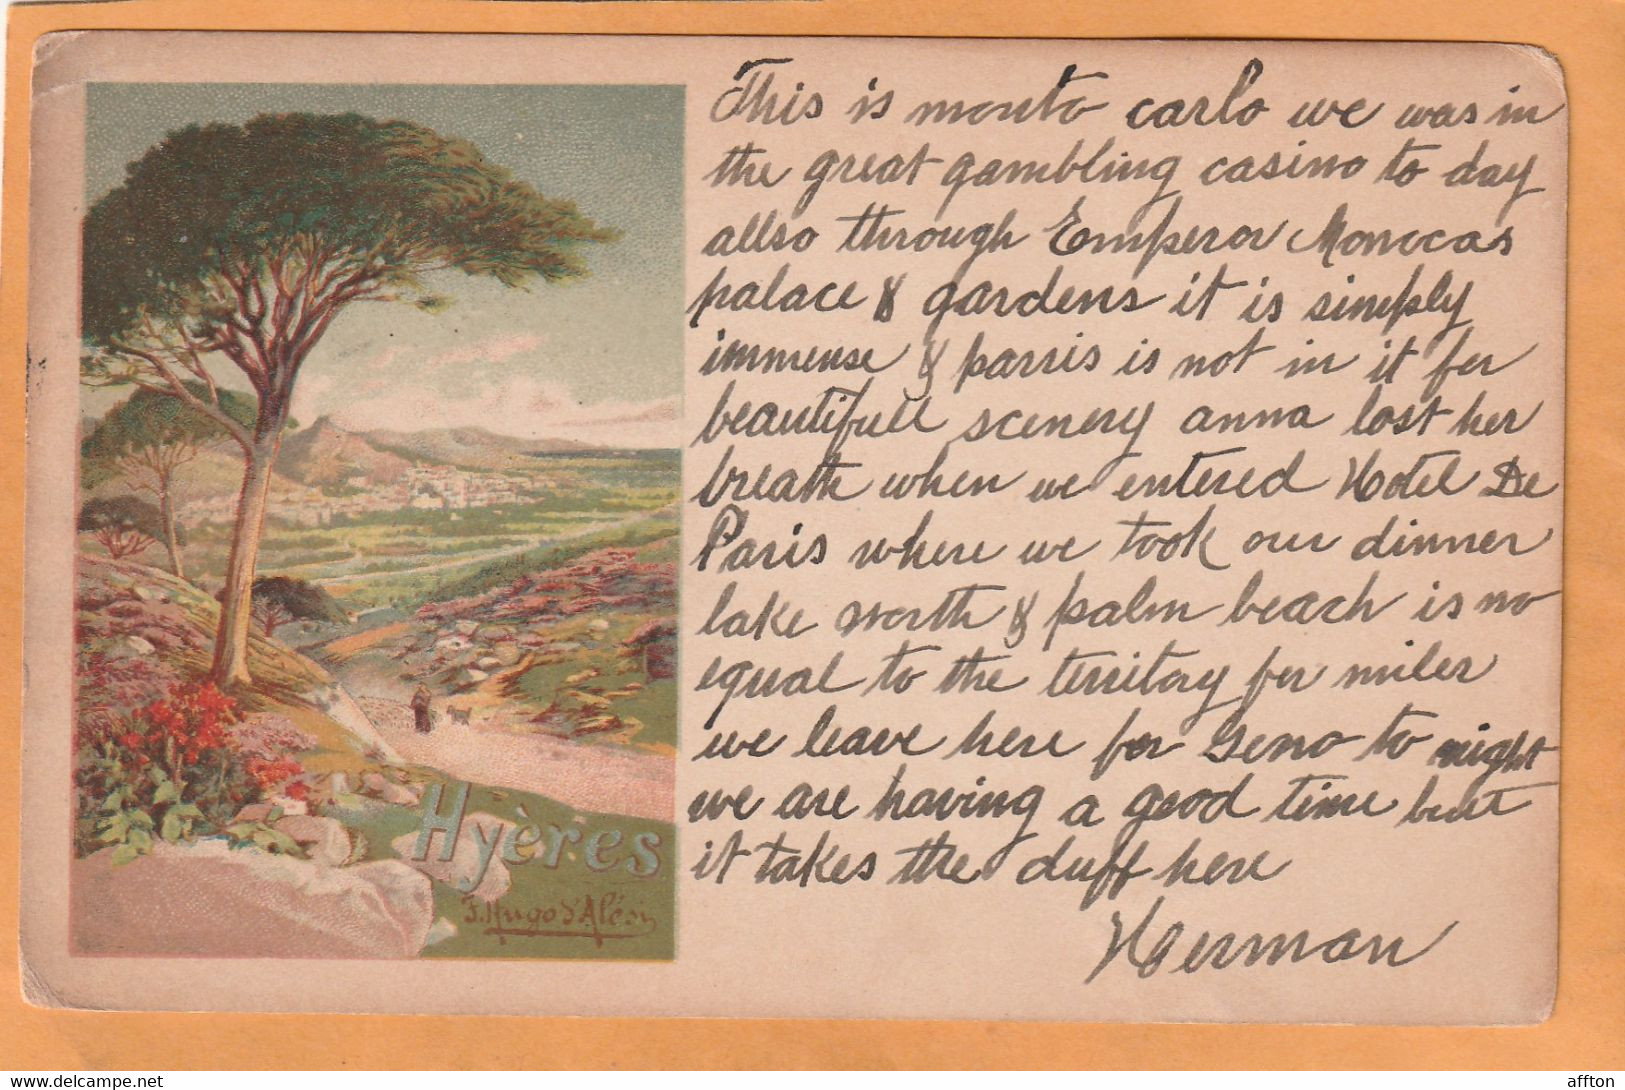 This is monto carlo we was in
the great gambling casino to day
allso through Emperor Monocas
palace & gardens it is simply
immense & parris is not in it for
beautifull scenery anna lost her
breath when we entered Hotel De
Paris where we took our dinner
lake worth & palm beach is no
equal to the territory for miles
we leave here for Geno to night
we are having a good time but
it takes the duff here
Herman
Hyères
F. Hugo d'Alési
affton